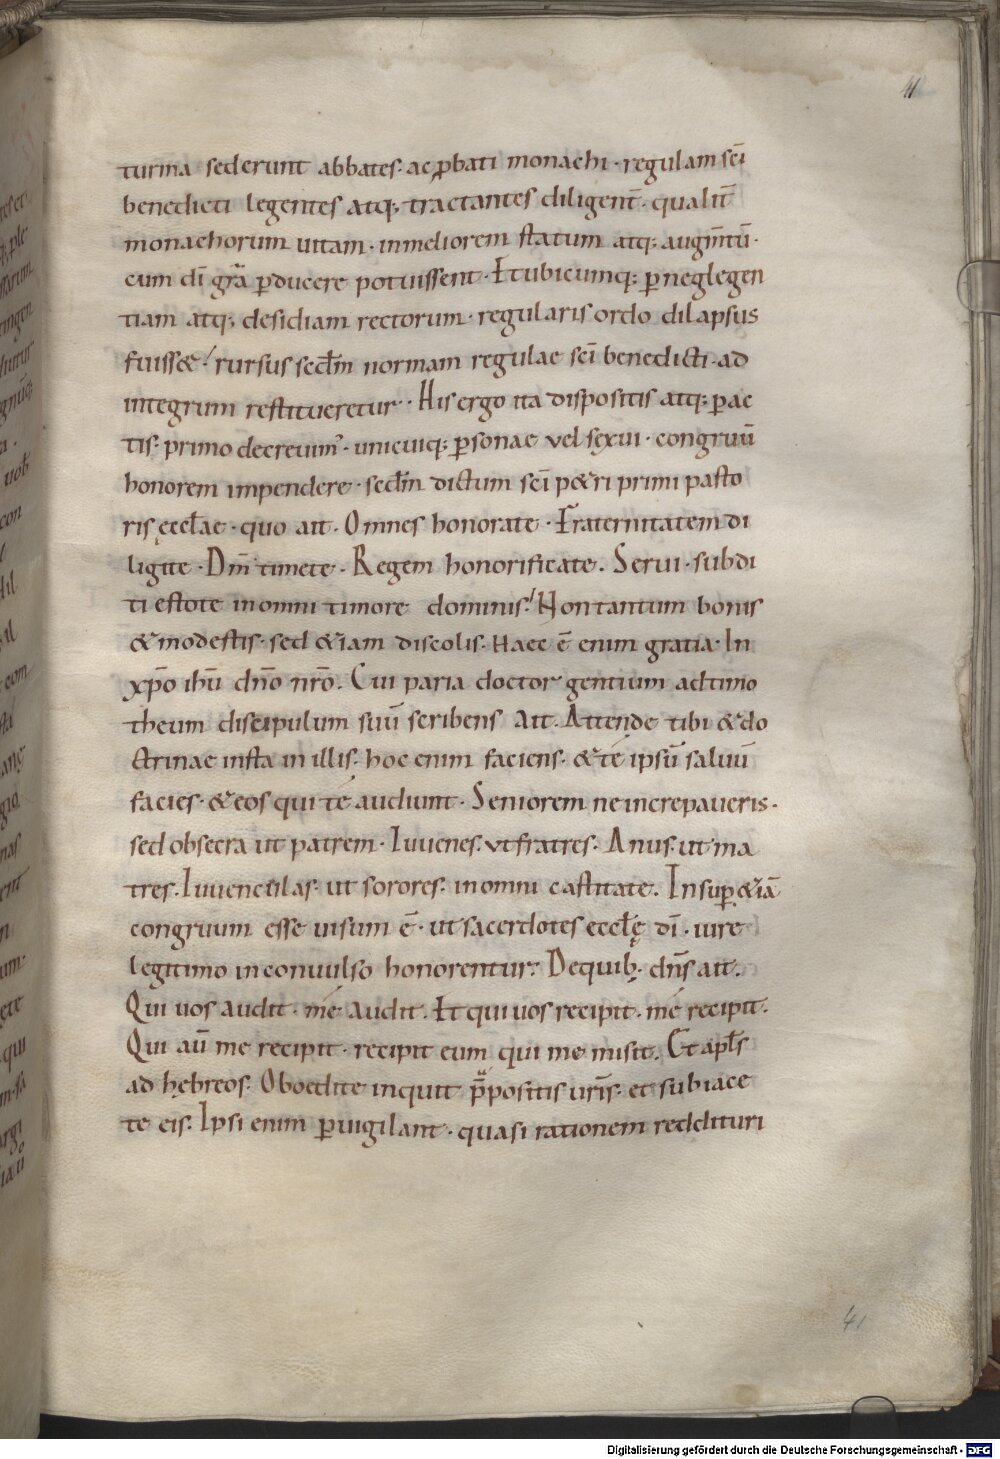 41
turma sederunt abbates· ac ꝓbati monachi· regulam sc̄i
benedicti legentes atq; tractantes diligent̄· qualit̄
monachorum uitam· inmeliorem statum atq; augm̄tū·
cum dī gr̄a ꝑducere potuissent· Et ubicumq; ꝑ neglegen
tiam atq; desidiam rectorum· regularis ordo dilapsus
fuiss&· rursus secd̄m normam regulae sc̄i benedicti· ad
integrum restitueretur· His ergo ita dispositis atq; ꝑac
tis· primo decreuim᾽· unicuiq; ꝑsonae vel sexui· congruū
honorem impendere· secd̄m dictum sc̄i p&ri primi pasto
ris ęccl̄ae· quo ait· Omnes honorate· Fraternitatem di
ligite· Dm̄ timete· Regem honorificate. Serui· subdi
ti estote in omni timore dominis· Non tantum bonis
& modestis· sed &iam discolis· Haec ē enim gratia· In
xp̄o ihū dn̄o nr̄o. Cui paria doctor gentium ad timo
theum discipulum suū scribens ait. Attende tibi & do
ctrinae insta in illis· hoc enim faciens· & té ipsū saluū
facies· & eos qui té audiunt· Seniorem ne increpaueris·
sed obsecra ut patrem· Iuuenes· vt fratres· Anus· ut ma
tres. Iuuenculas· ut sorores· in omni castitate. Insuꝑ &iā
congruum esse uisum ē· ut sacerdotes eccl̄ę dī· iure
legitimo inconuulso honorentur· De quib; dn̄s ait.
Qui uos audit· mé audit. Et qui uos recipit· mé recipit·
Qui aū me recipit· recipit eum qui me misit. Et apl̄s
ad hębreos· Oboedite inquit p̄positis ur̄is· et subiace
te eis. Ipsi enim ꝑuigilant· quasi rationem reddituri
41
Digitalisierung gefördert durch die Deutsche Forschungsgemeinschaft - DFG